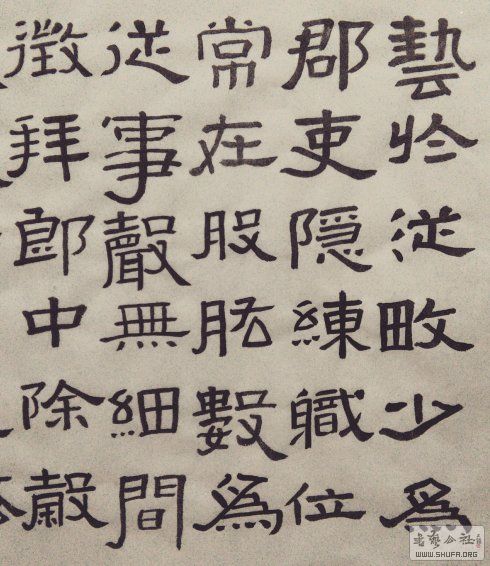 藝於從畋少為
郡吏隱練職位
常在股肱數為
從事聲無細間
徵拜郎中除穀
書藝公社
WWW.SHUFA.ORG